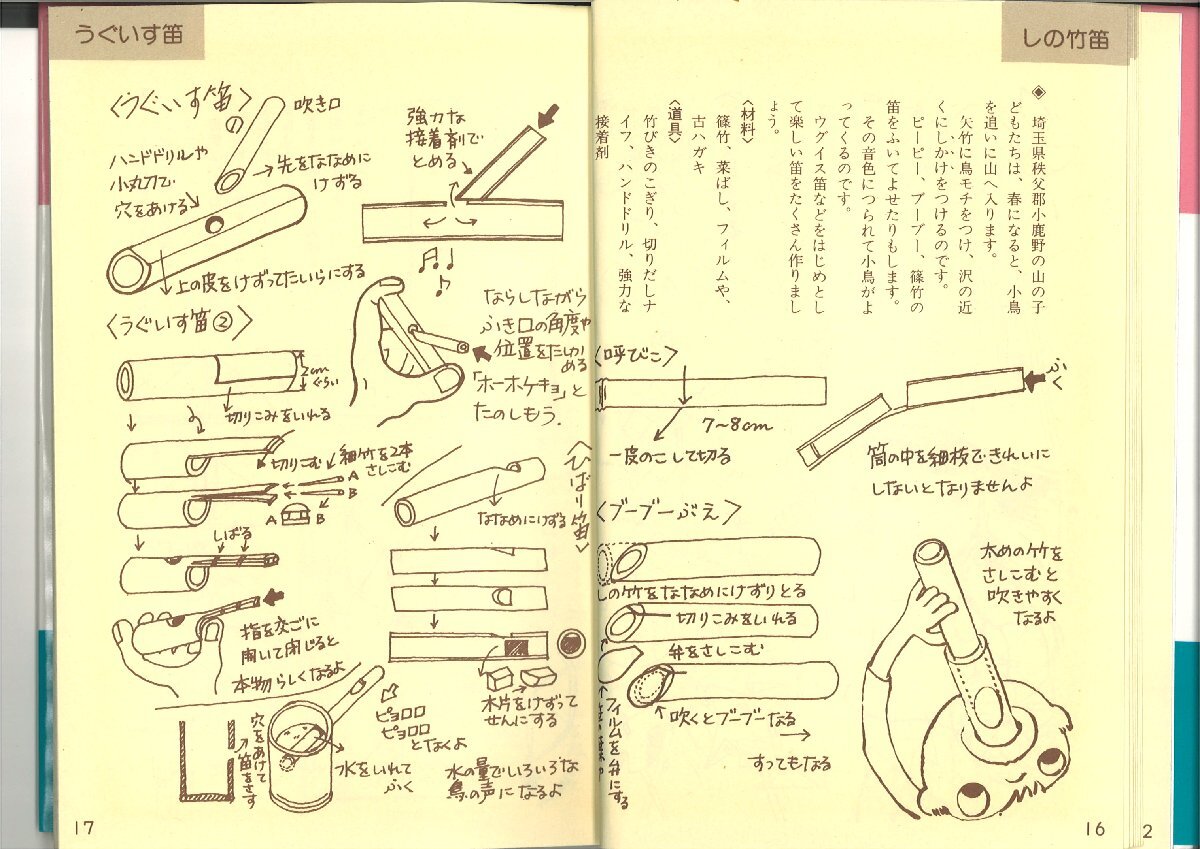 しの竹笛
◈ 埼玉県秩父郡小鹿野の山の子
どもたちは、春になると、小鳥
を追いに山へ入ります。
矢竹に鳥モチをつけ、沢の近
くにしかけをつけるのです。
ピーピー、ブーブー、篠竹の
笛をふいてよせたりもします。
その音色につられて小鳥がよ
ってくるのです。
ウグイス笛などをはじめとし
て楽しい笛をたくさん作りまし
ょう。
〈材料〉
篠竹、菜ばし、フィルムや、
古ハガキ
〈道具〉
竹びきのこぎり、切りだしナ
イフ、ハンドドリル、強力な
接着剤
〈呼びこ〉
7〜8cm
一度のこして切る
ふく
筒の中を細枝できれいに
しないとなりませんよ
〈ブーブーぶえ〉
しの竹をななめにけずりとる
切りこみをいれる
弁をさしこむ
フィルムを弁にする
吹くとブーブーなる
すってもなる
太めの竹を
さしこむと
吹きやすく
なるよ
16
2
うぐいす笛
〈うぐいす笛①〉
吹き口
ハンドドリルや
小丸刀で
穴をあける
先をななめに
けずる
上の皮をけずってたいらにする
強力な
接着剤で
とめる
ならしながら
ふき口の角度や
位置をたしかめる
「ホーホケキョ」と
たのしもう.
〈うぐいす笛②〉
2cm
ぐらい
切りこみをいれる
切りこむ
細竹を2本
さしこむ
A
B
A
B
しばる
指を交ごに
開いて閉じると
本物らしくなるよ
〈ひばり笛〉
ななめにけずる
木片をけずって
せんにする
穴をあけて
笛をさす
ピョロロ
ピョロロ
となくよ
水をいれて
ふく
水の量でいろいろな
鳥の声になるよ
17